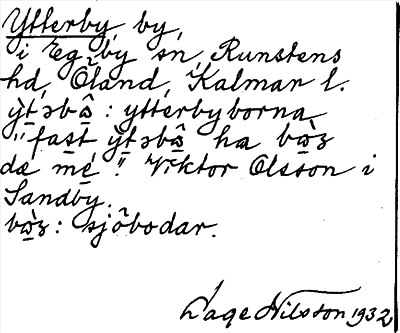 Ytterby, by,
i Egby sn, Runstens
hd, Öland, Kalmar l.
ỳt̠əbô̠ : ytterbyborna,
"fas̠t ỳt̠əbô̠ ha bὼ̠z
dæ mé̠". Viktor Olsson i
Sandby.
bὼ̠z : sjöbodar.
Dage Nilsson 1932